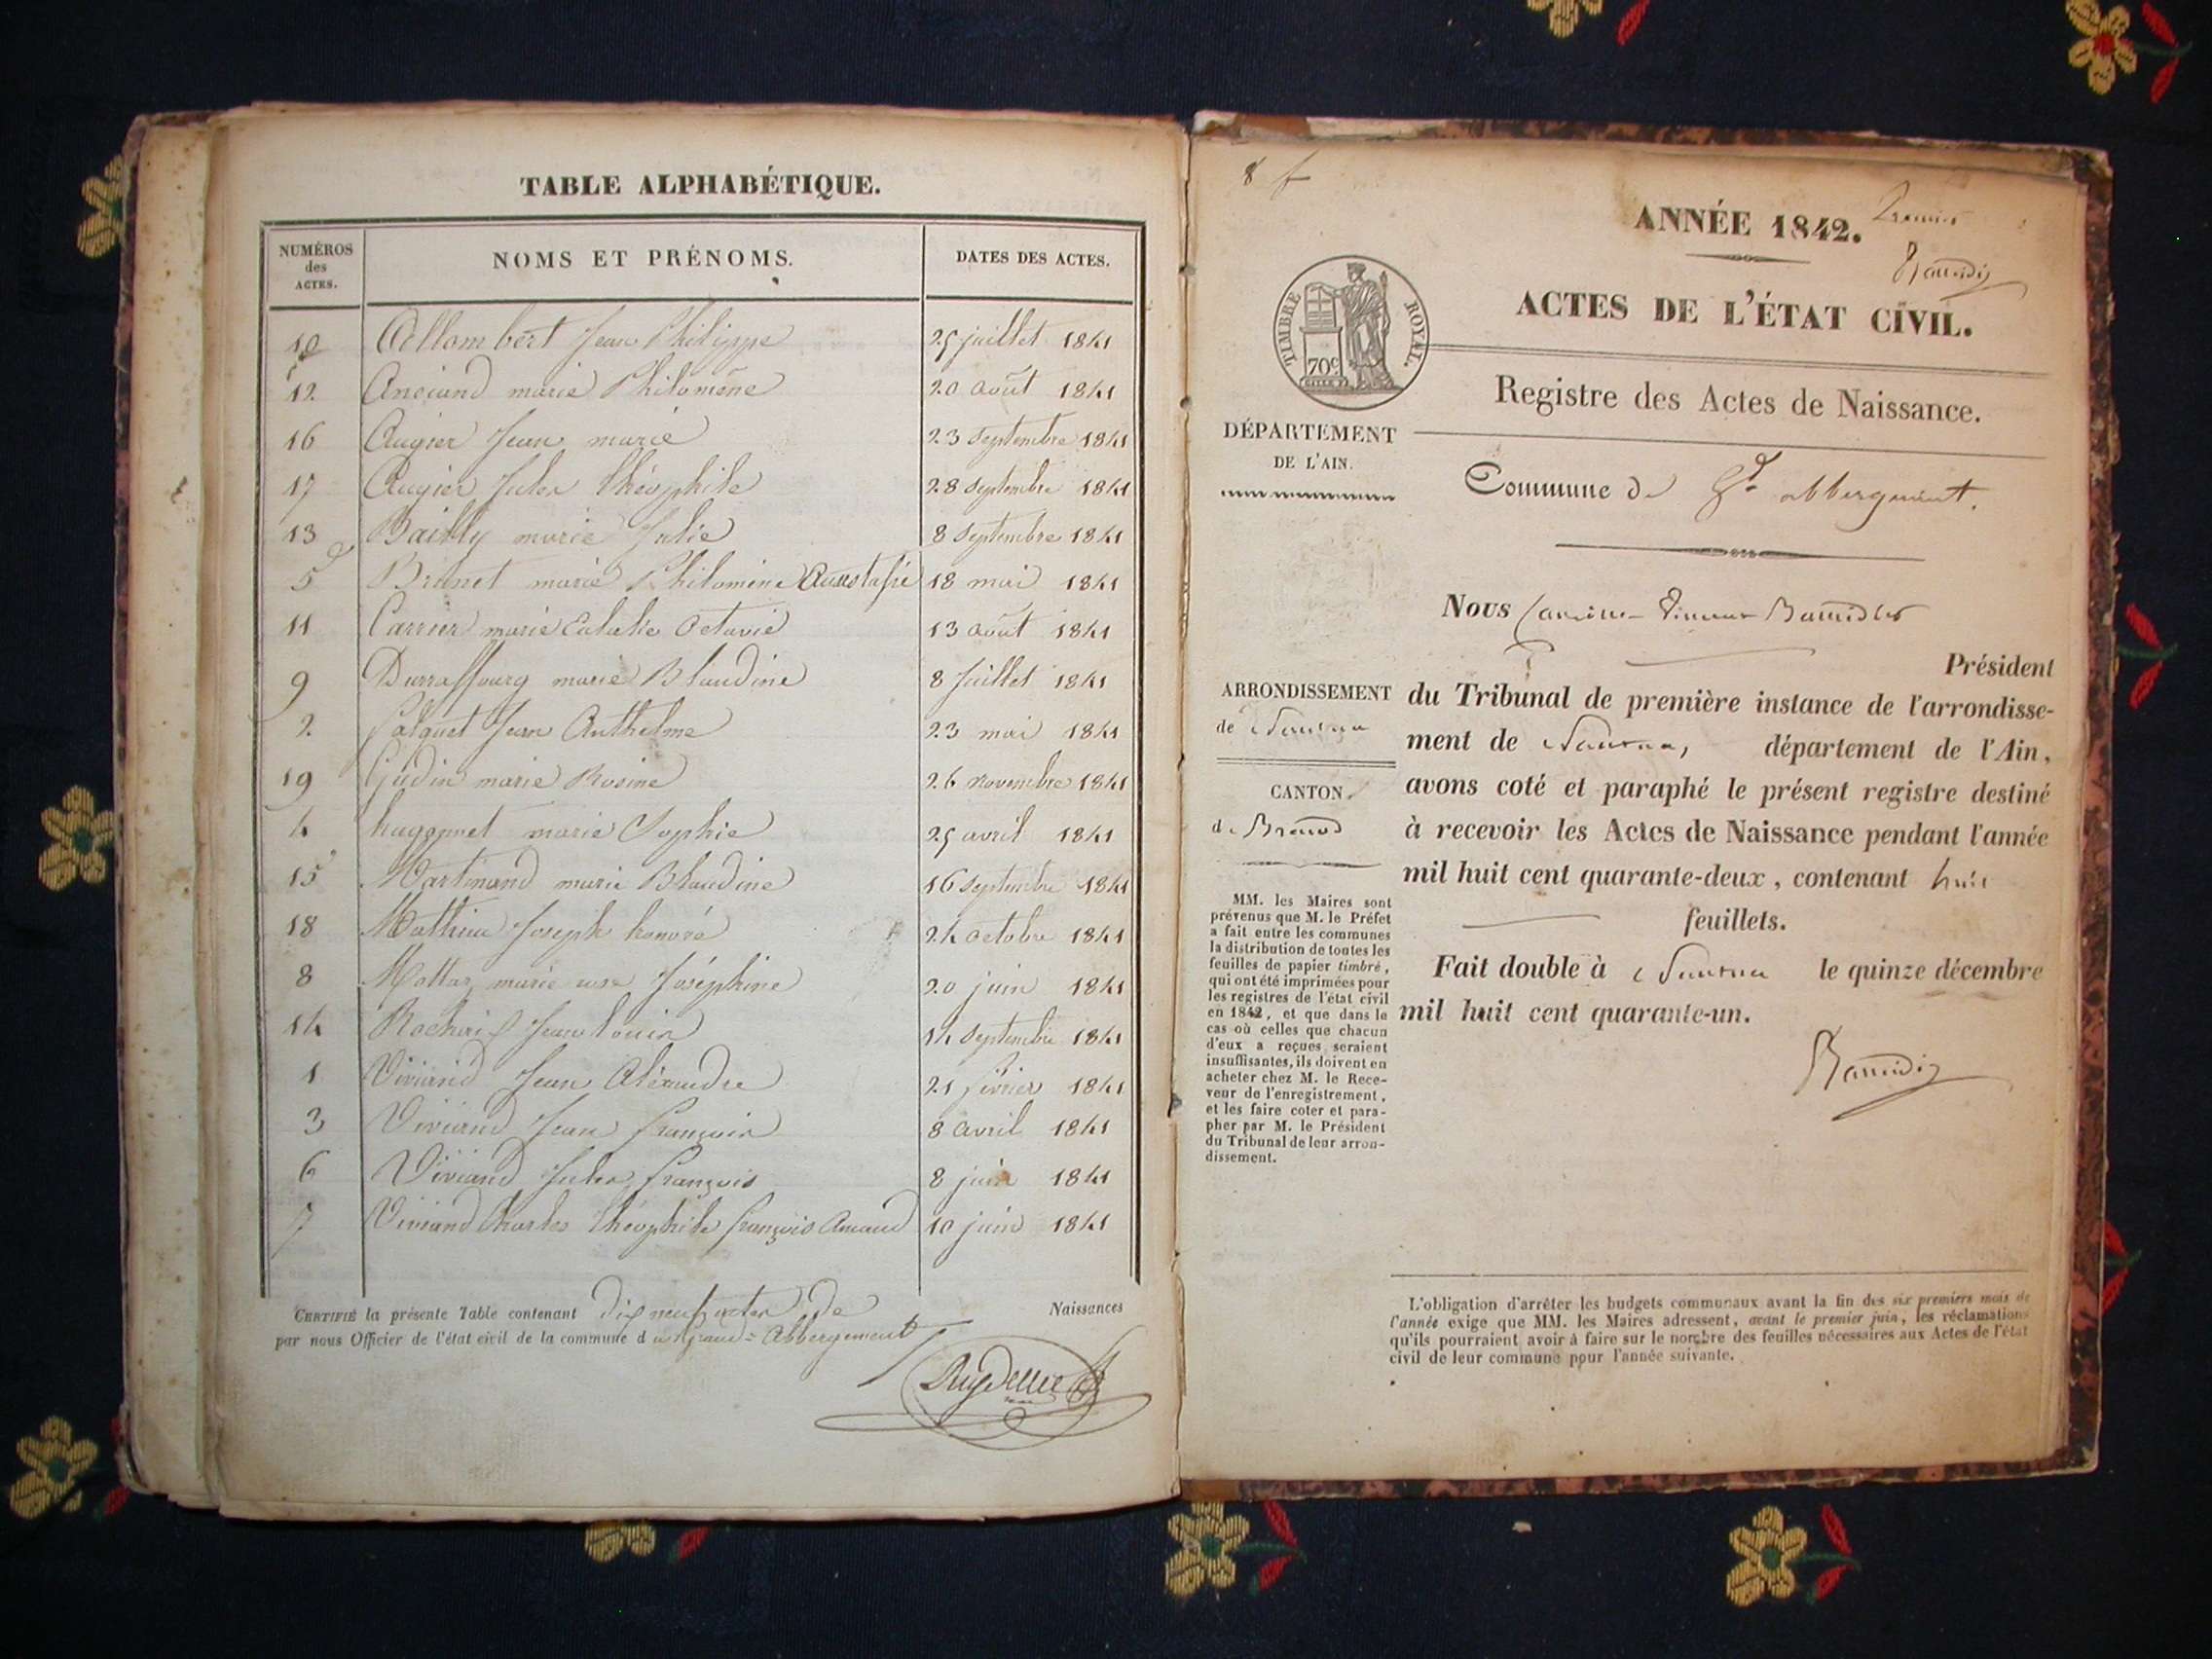 TABLE ALPHABÉTIQUE.
NUMÉROS des ACTES. NOMS ET PRÉNOMS. DATES DES ACTES.
10 Allombert Jean Philippe 25 juillet 1841
12 Anciand marie Philomène 20 août 1841
16 Augier Jean marie 23 septembre 1841
17 Augier Jules théophile 28 septembre 1841
13 Bailly marie Julie 8 septembre 1841
5 Brunet marie Philomène 18 mai 1841
11 Carrier marie Eulalie Octavie 13 août 1841
9 Durraffourg marie Blaudine 8 Juillet 1841
2 Jean Anthelme 23 mai 1841
19 Gudin marie Rosine 26 novembre 1841
4 hugonnet marie Sophie 25 avril 1841
15 Martinand marie Blaudine 16 septembre 1841
18 Mathieu Joseph honoré 24 octobre 1841
8 Mottaz marie Joséphine 20 juin 1841
14 Rochaix Jean louis 14 septembre 1841
1 Viviand Jean Aléxandre 21 février 1841
3 Viviand Jean françois 8 avril 1841
6 Viviand Jules françois 8 juin 1841
7 Viviand Charles théophile françois Amand 10 juin 1841
CERTIFIÉ la présente Table contenant dix neuf actes de Naissances
par nous Officier de l'état civil de la commune d u Grand = Abbergement
8 f
ANNÉE 1842. Premier
ACTES DE L'ÉTAT CIVIL.
TIMBRE ROYAL.
70c
Registre des Actes de Naissance.
DÉPARTEMENT
DE L'AIN.
Commune de Gd abbergement.
Nous
Président
ARRONDISSEMENT
de Nantua
CANTON
de Brenod
MM. les Maires sont
prévenus que M. le Préfet
a fait entre les communes
la distribution de toutes les
feuilles de papier timbré,
qui ont été imprimées pour
les registres de l'état civil
en 1842, et que dans le
cas où celles que chacun
d'eux a reçues seraient
insuffisantes, ils doivent en
acheter chez M. le Rece-
veur de l'enregistrement,
et les faire coter et para-
pher par M. le Président
du Tribunal de leur arron-
dissement.
du Tribunal de première instance de l'arrondisse-
ment de Nantua, département de l'Ain,
avons coté et paraphé le présent registre destiné
à recevoir les Actes de Naissance pendant l'année
mil huit cent quarante-deux, contenant huit
feuillets.
Fait double à Nantua le quinze décembre
mil huit cent quarante-un.
L'obligation d'arrêter les budgets communaux avant la fin des six premiers mois de
l'année exige que MM. les Maires adressent, avant le premier juin, les réclamations
qu'ils pourraient avoir à faire sur le nombre des feuilles nécessaires aux Actes de l'état
civil de leur commune pour l'année suivante.